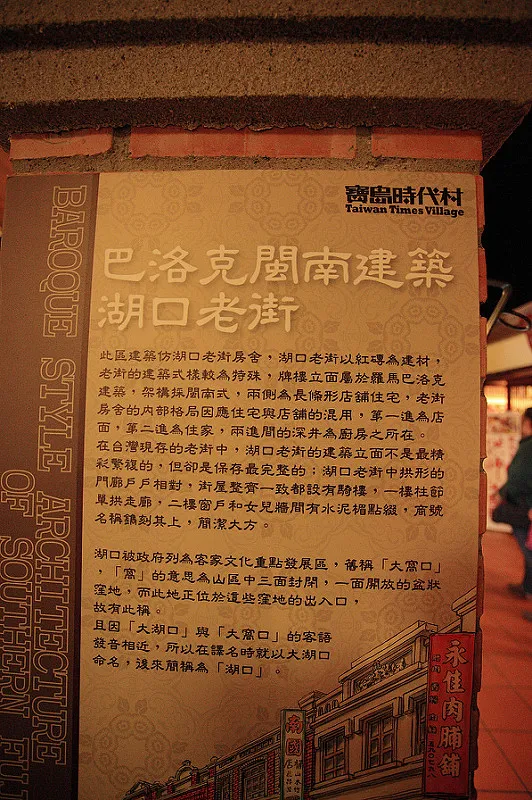 寶島時代村
Taiwan Times Village
巴洛克閩南建築
湖口老街
BAROQUE STYLE ARCHITECTURE
OF SOUTHERN FUJ
此區建築仿湖口老街房舍，湖口老街以紅磚為建材，
老街的建築式樣較為特殊，牌樓立面屬於羅馬巴洛克
建築，架構採閩南式，兩側為長條形店舖住宅，老街
房舍的內部格局因應住宅與店舖的混用，第一進為店
面，第二進為住家，兩進間的深井為廚房之所在。
在台灣現存的老街中，湖口老街的建築立面不是最精
彩繁複的，但卻是保存最完整的；湖口老街中拱形的
門廊戶戶相對，街屋整齊一致都設有騎樓，一樓柱飾
單拱走廊，二樓窗戶和女兒牆間有水泥楣點綴，商號
名稱鐫刻其上，簡潔大方。
湖口被政府列為客家文化重點發展區，舊稱「大窩口」
，「窩」的意思為山區中三面封閉，一面開放的盆狀
窪地，而此地正位於這些窪地的出入口，
故有此稱。
且因「大湖口」與「大窩口」的客語
發音相近，所以在譯名時就以大湖口
命名，後來簡稱為「湖口」。
永佳肉脯舖
南國